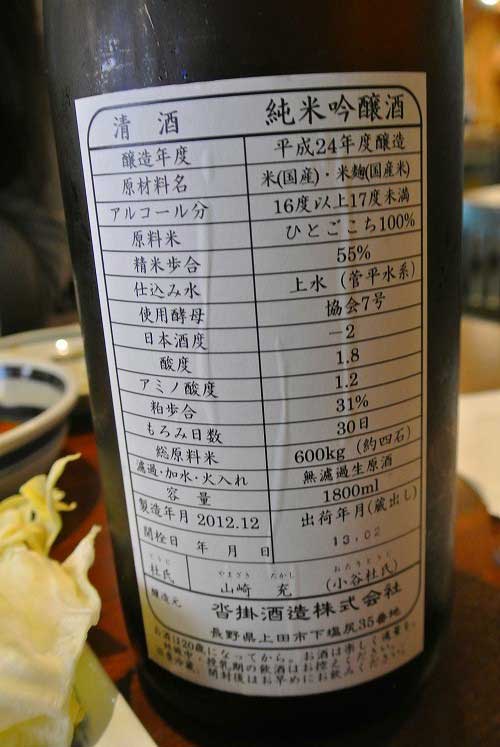 清酒 純米吟醸酒
醸造年度 平成24年度醸造
原材料名 米(国産)・米麹(国産米)
アルコール分 16度以上17度未満
原料米 ひとごこち100%
精米歩合 55%
仕込み水 上水（菅平水系）
使用酵母 協会7号
日本酒度 −2
酸度 1.8
アミノ酸度 1.2
粕歩合 31%
もろみ日数 30日
総原料米 600kg（約四石）
濾過・加水・火入れ 無濾過生原酒
容量 1800ml
製造年月 2012.12 出荷年月(蔵出し)
開栓日 年 月 日 13.02
とうじ やまざき たかし おたりとうじ
杜氏 山崎 充 (小谷杜氏)
醸造元 沓掛酒造株式会社
長野県上田市下塩尻35番地
お酒は20歳になってから。お酒は楽しく適量を。
妊娠中・授乳期の飲酒はお控えください。
要冷蔵。開封後はお早めにお飲みください。